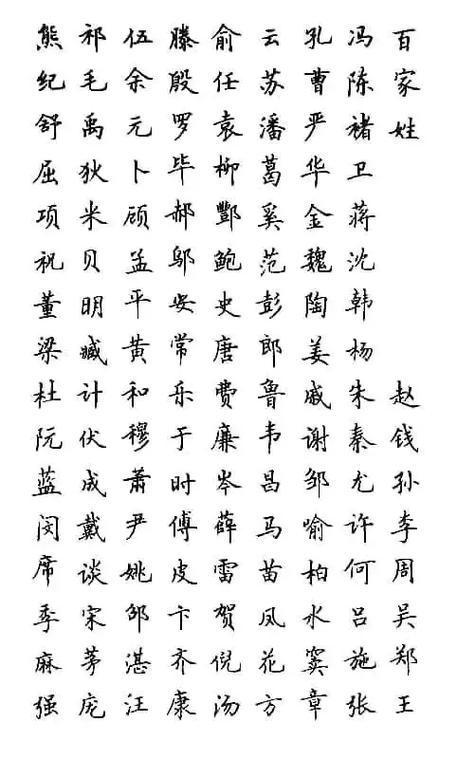 百家姓
赵钱孙李周吴郑王
冯陈褚卫蒋沈韩杨朱秦尤许何吕施张
孔曹严华金魏陶姜戚谢邹喻柏水窦章
云苏潘葛奚范彭郎鲁韦昌马苗凤花方
俞任袁柳酆鲍史唐费廉岑薛雷贺倪汤
滕殷罗毕郝邬安常乐于时傅皮卞齐康
伍余元卜顾孟平黄和穆萧尹姚邵湛汪
祁毛禹狄米贝明臧计伏成戴谈宋茅庞
熊纪舒屈项祝董梁杜阮蓝闵席季麻强